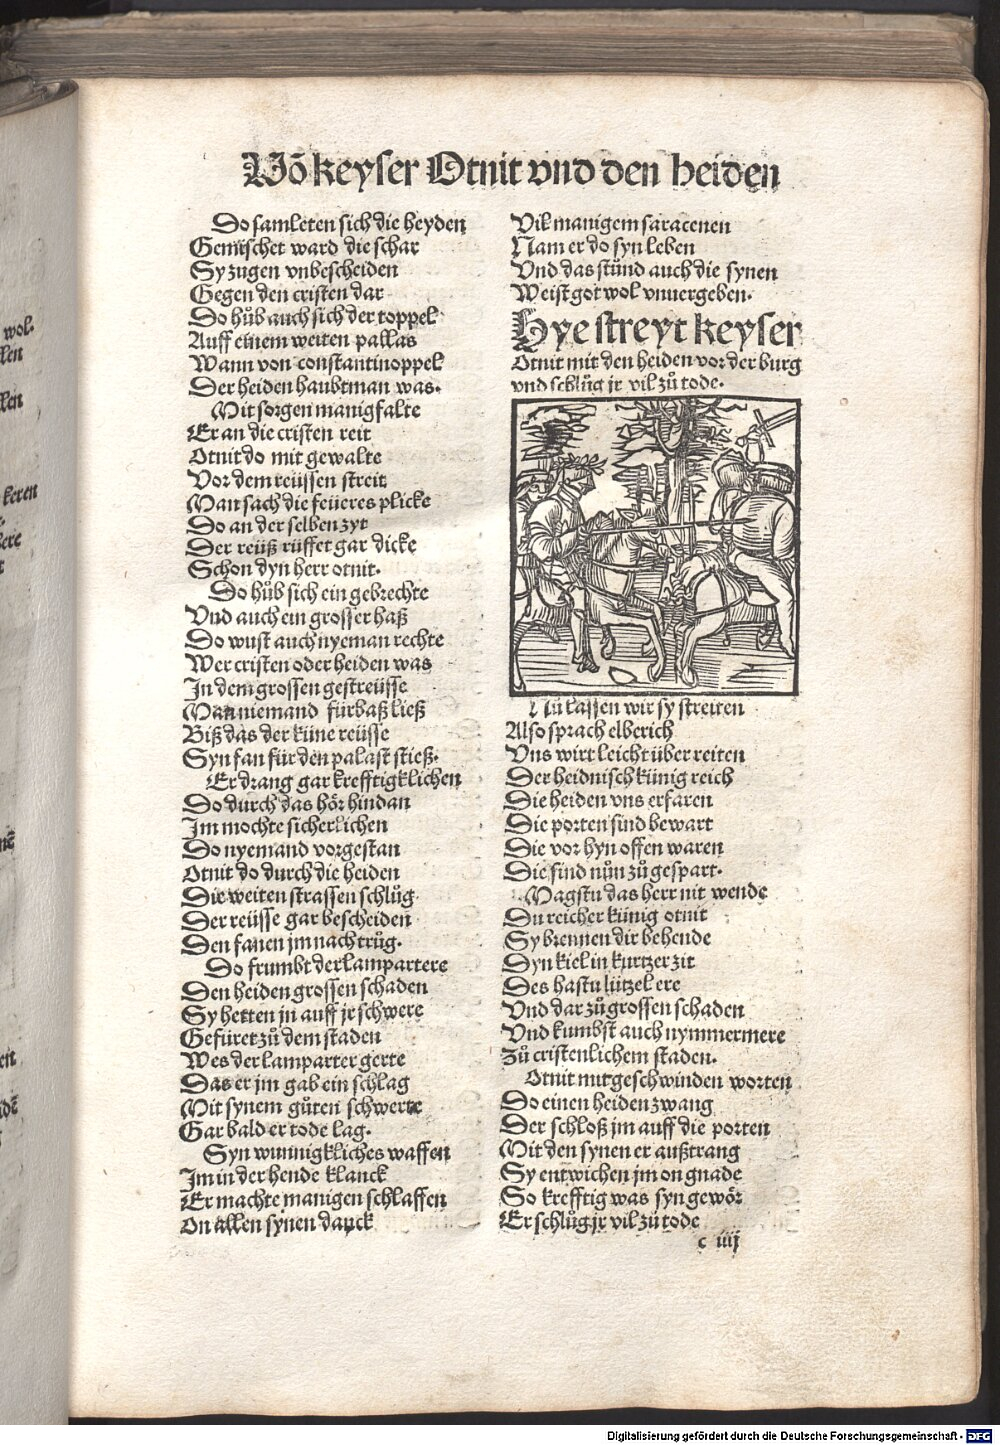 Võ keyser Otnit vnd den heiden
Do samleten sich die heyden
Gemischet ward die schar
Sy zugen vnbescheiden
Gegen den cristen dar
Do hůb auch sich der toppel
Auff einem weiten pallas
Wann von constantinoppel
Der heiden haubtman was.
Mit sorgen manigfalte
Er an die cristen reit
Otnit do mit gewalte
Vor dem reüssen streit
Man sach die feüeres plicke
Do an der selben zyt
Der reüß rüffet gar dicke
Schon dyn herr otnit.
Do hůb sich ein gebrechte
Vnd auch ein grosser haß
Do wust auch nyeman rechte
Wer cristen oder heiden was
In dem grossen gestreüsse
Man niemand fürbaß ließ
Biß das der küne reüsse
Syn fan für den palast stieß.
Er drang gar krefftigklichen
Do durch das hör hindan
Im mochte sicherlichen
Do nyemand vorgestan
Otnit do durch die heiden
Die weiten strassen schlůg
Der reüsse gar bescheiden
Den fanen jm nach trůg.
Do frumbt der lampartere
Den heiden grossen schaden
Sy hetten jn auff jr schwere
Gefüret zů dem staden
Wes der lamparter gerte
Das er jm gab ein schlag
Mit synem gůten schwerte
Gar bald er tode lag.
Syn wunnigkliches waffen
Im in der hende klanck
Er machte manigen schlaffen
On allen synen danck
Vil manigem saracenen
Nam er do syn leben
Vnd das stůnd auch die synen
Weist got wol vnuergeben.
Hye streyt keyser
Otnit mit den heiden vor der burg
vnd schlůg jr vil zů tode.
Nu lassen wir sy streiten
Also sprach elberich
Vns wirt leicht über reiten
Der heidnisch künig reich
Die heiden vns erfaren
Die porten sind bewart
Die vor hyn offen waren
Die sind nůn zů gespart.
Magstu das herr nit wende
Du reicher künig otnit
Sy brennen dir behende
Dyn kiel in kurtzer zit
Des hastu lützel ere
Vnd dar zů grossen schaden
Vnd kumbst auch nymmermere
Zů cristenlichem staden.
Otnit mit geschwinden worten
Do einen heiden zwang
Der schloß jm auff die porten
Mit den synen er außtrang
Sy entwichen jm on gnade
So krefftig was syn gewör
Er schlůg jr vil zů tode
c iiij
wol.
keren
Digitalisierung gefördert durch die Deutsche Forschungsgemeinschaft - DFG